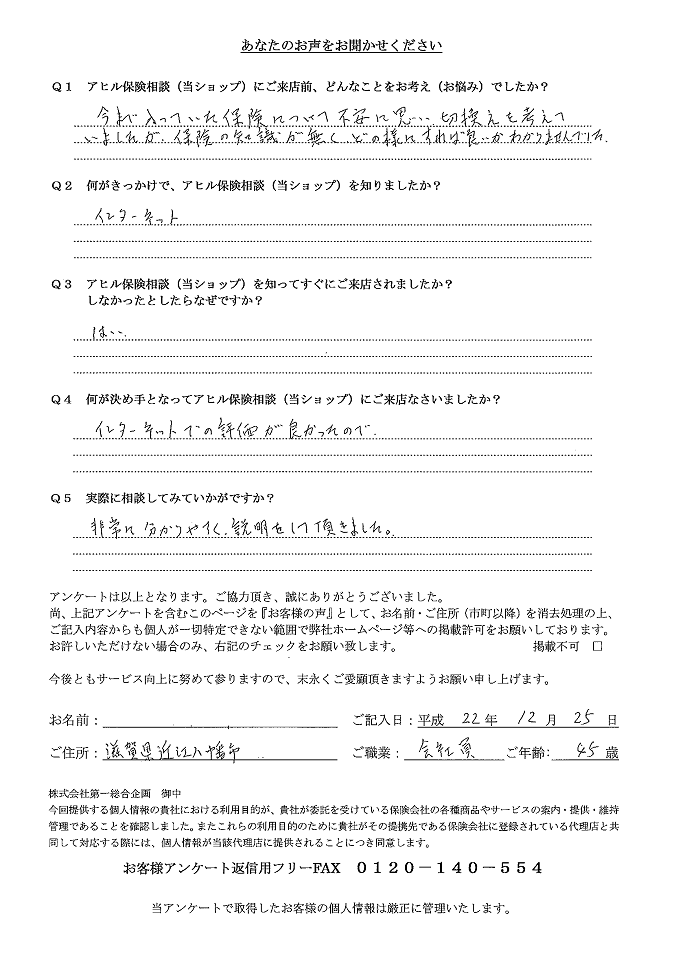 あなたのお声をお聞かせください
Q１ アヒル保険相談（当ショップ）にご来店前、どんなことをお考え（お悩み）でしたか？
今まで入っていた保険について不安に思い、切換えを考えて
いましたが、保険の知識が無く、どの様にすれば良いかわかりませんでした。
Q２ 何がきっかけで、アヒル保険相談（当ショップ）を知りましたか？
インターネット
Q３ アヒル保険相談（当ショップ）を知ってすぐにご来店されましたか？
しなかったとしたらなぜですか？
はい。
Q４ 何が決め手となってアヒル保険相談（当ショップ）にご来店なさいましたか？
インターネットでの評価が良かったので。
Q５ 実際に相談してみていかがですか？
非常に分かりやすく、説明をして頂きました。
アンケートは以上となります。ご協力頂き、誠にありがとうございました。
尚、上記アンケートを含むこのページを『お客様の声』として、お名前・ご住所（市町以降）を消去処理の上、
ご記入内容からも個人が一切特定できない範囲で弊社ホームページ等への掲載許可をお願いしております。
お許しいただけない場合のみ、右記のチェックをお願い致します。 掲載不可 □
今後ともサービス向上に努めて参りますので、末永くご愛顧頂きますようお願い申し上げます。
お名前： ご記入日：平成 22年 12月 25日
ご住所：滋賀県近江八幡市 ご職業：会社員 ご年齢：45歳
株式会社第一総合企画 御中
今回提供する個人情報の貴社における利用目的が、貴社が委託を受けている保険会社の各種商品やサービスの案内・提供・維持
管理であることを確認しました。またこれらの利用目的のために貴社がその提携先である保険会社に登録されている代理店と共
同して対応する際には、個人情報が当該代理店に提供されることにつき同意します。
お客様アンケート返信用フリーFAX ０１２０－１４０－５５４
当アンケートで取得したお客様の個人情報は厳正に管理いたします。